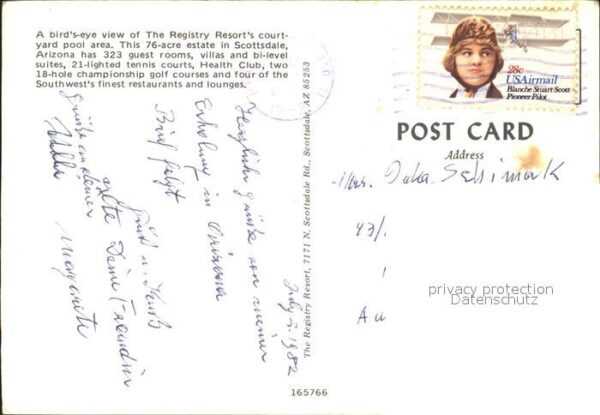 A bird's-eye view of The Registry Resort's court-
yard pool area. This 76-acre estate in Scottsdale,
Arizona has 323 guest rooms, villas and bi-level
suites, 21-lighted tennis courts, Health Club, two
18-hole championship golf courses and four of the
Southwest's finest restaurants and lounges.
28c
USAirmail
Blanche Stuart Scott
Pioneer Pilot
POST CARD
Address
Mrs.
43/
privacy protection
Datenschutz
The Registry Resort, 7171 N. Scottsdale Rd., Scottsdale, AZ 85253
July 2. 1982
Herzliche Grüße von meiner
Erholung in Arizona
Brief folgt
Gruß u. Kuß
Deine Freundin
Margarete
165766